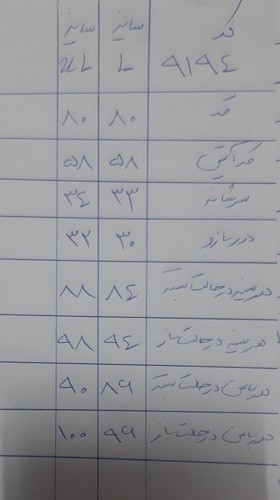 کد سایز سایز
۹۱۹٤ L XL
قد ۸۰ ۸۰
قد آستین ۵۸ ۵۸
سرشانه ۳۳ ۳٤
دور بازو ۳۰ ۳۲
دور سینه در حالت بسته ۸٤ ۸۸
دور سینه در حالت باز ۹٤ ۹۸
دور باسن در حالت بسته ۸۶ ۹۰
دور باسن در حالت باز ۹۶ ۱۰۰